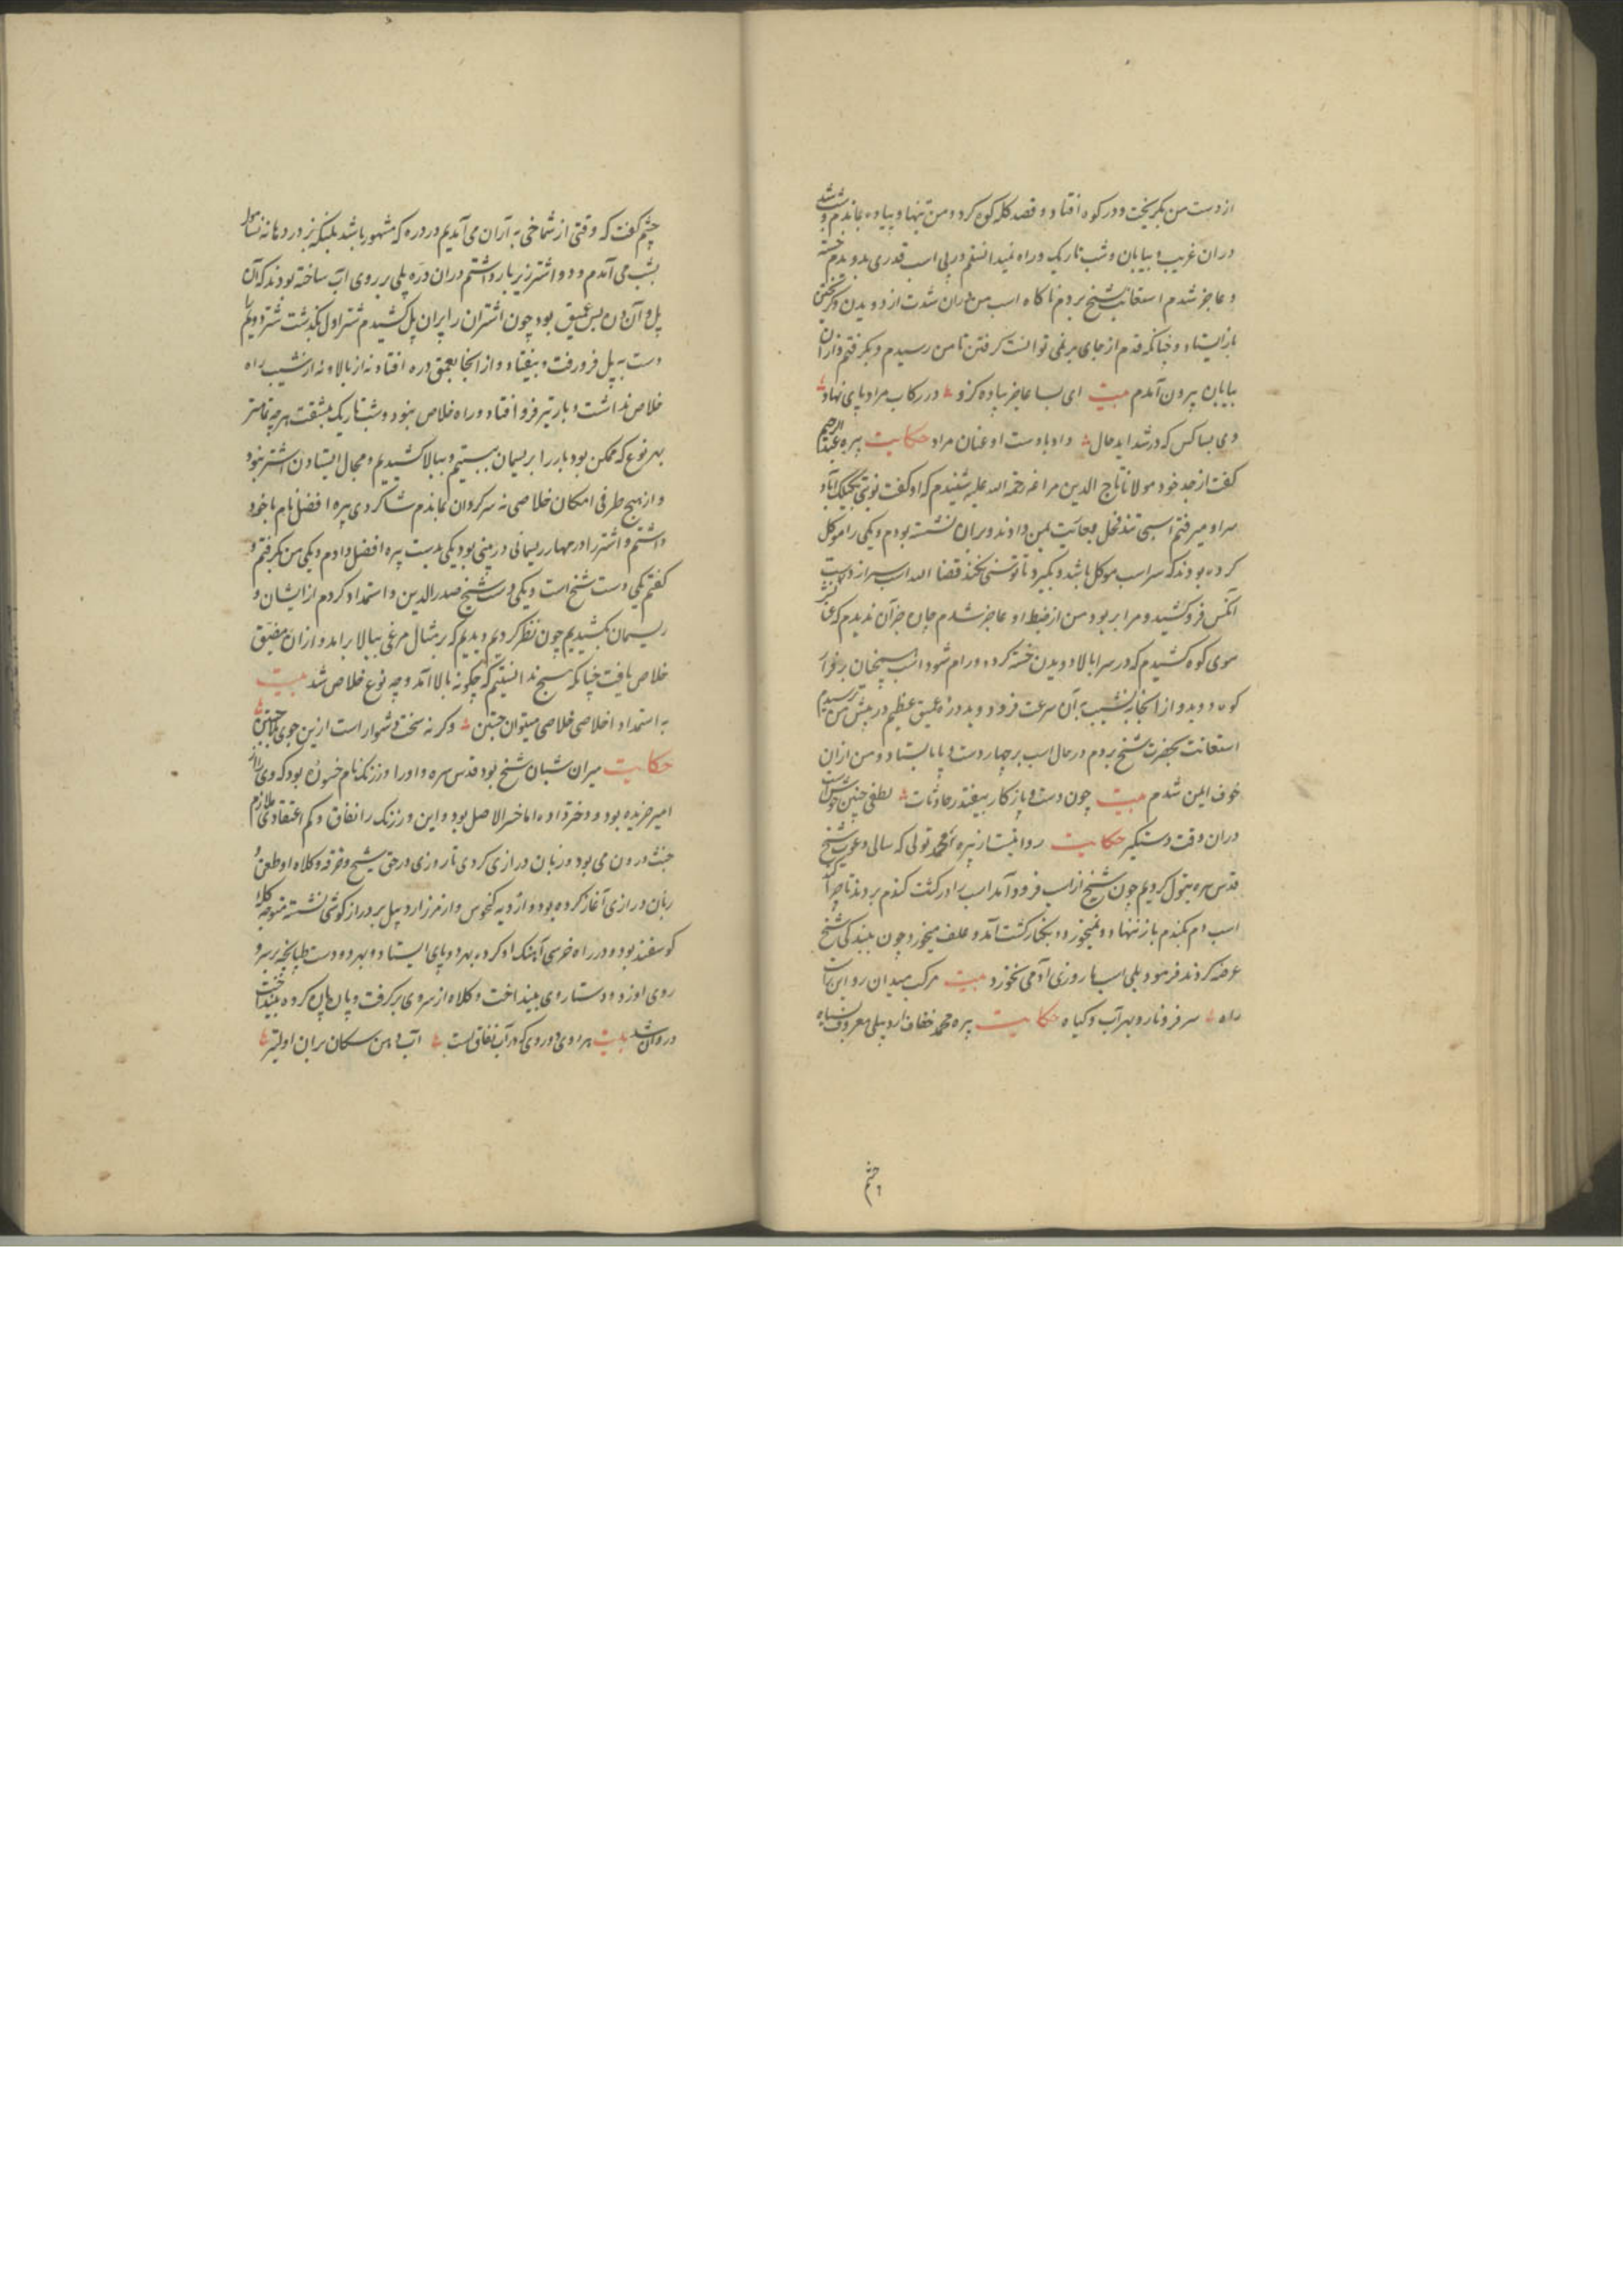 از دست من بگریخت و در کوه افتاد و قصد کله کوه کرد و من تنها و پیاده بماندم و شب
در آن غریب و بیابان و شب تاریک و راه نمیدانستم در پی اسب قدری بدویدم خسته
و عاجز شدم استعانت بشیخ بردم ناکاه اسب من در آن شدت از دویدن و گریختن
باز ایستاد و چنانکه قدم از جای برنمی توانست گرفتن تا من رسیدم و بگرفتم و از آن
بیابان بیرون آمدم بیت ای بسا عاجز پیاده کزو در رکاب مراد پای نهاد
وی بسا کس که در شداید حال داد با دست او عنان مراد حکایت پیره عبدالرحیم
گفت از جد خود مولانا تاج الدین مراغه رحمة الله علیه شنیدم که او گفت نوبتی
میرفتم اسبی تند فحل بعاریت بمن دادند و بر آن نشسته بودم و یکی را موکل
کرده بودند که سر اسب موکل باشد و بگیرد تا توسنی نکند قضا را اسب سر از دست
آنکس فرو کشید و مرا بربود من از ضبط او عاجز شدم چاره جز آن ندیدم که عنانش
سوی کوه کشیدم که در سر بالا دویدن خسته کردد و رام شود اسب همچنان بر فراز
کوه دوید و از آنجا بنشیب به آن سرعت فرو دوید و دره عمیق عظیم در پیش من بترسیدم
استعانت بحضرت شیخ بردم در حال اسب بر چهار دست و پا بایستاد و من از آن
خوف ایمن شدم بیت چون دست و پا ز کار بیفتد ز حادثات لطفی چنین خوش است
در آن وقت دستگیر حکایت روایتست از پیره محمد تولی که سالی دعوت شیخ
قدس سره بتول کردیم چون شیخ از اسب فرود آمد اسب را در کشت گندم بردند تا چرا کند
اسب دم بگندم باز ننهاد و نمیخورد و بکنار کشت آمد و علف میخورد چون ببندگی شیخ
عرضه کردند فرمود بلی اسب ما روزی آدمی نخورد بیت مرکب میدان رو این
راه سر فرو نارد بهر آب و گیاه حکایت پیره محمد خفاف اردبیلی معروف بسیاه
چشم
چشم گفت که وقتی از شماخی به آران می آمدیم در دره که مشهور باشد
بشب می آمدم و دو اشتر زیر بار داشتم در آن دره پلی بر روی آب ساخته بودند که آن
پل و آن دره بس عمیق بود چون اشتران را بر آن پل کشیدم شتر اول بگذشت شتر دویم را
دست به پل فرو رفت و بیفتاد و از آنجا بعمق دره افتاد نه از بالا و نه از نشیب راه
خلاص نداشت و بار نیز فرو افتاد و راه خلاص نبود و شب تاریک بمشقت هر چه تمامتر
بهر نوع که ممکن بود بار را بریسمان ببستیم و ببالا کشیدیم و مجال ایستادن اشتر نبود
و از هیچ طرفی امکان خلاصی نه سرگردان بماندم شاگردی پیره افضل نام با خود
داشتم و اشتر را در مهار ریسمانی در بینی بود یکی بدست پیره افضل دادم و یکی من بگرفتم و
گفتم یکی دست شیخ است و یکی دست شیخ صدرالدین و استمداد کردم از ایشان و
ریسمان بکشیدیم چون نظر کردیم دیدیم که بر مثال مرغی ببالا برآمد و از آن مضیق
خلاص یافت چنانکه هیچ ندانستیم که چگونه بالا آمد و چه نوع خلاص شد بیت
به استمداد اخلاصی خلاصی میتوان جستن وگرنه سخت دشوار است ازین جوی بلا جستن
حکایت میران شبان شیخ بود قدس سره و او را ورزنکه نام خسوره بود که وی را از
امیر خریده بود و دختر داده اما خسر الاصل بود و این ورزنک را نفاق و کم اعتقادی ملازم
خبث درون می بود و زبان درازی کردی تا روزی در حق شیخ و خرقه و کلاه او طعن و
زبان درازی آغاز کرده بود و از دیه گنجوس و از مرز اردبیل بر دراز گوشی نشسته متوجه گله
گوسفند بود و در راه خرسی آهنگ او کرد بهر دو پای ایستاد و بهر دو دست طپانچه بر سر و
روی او زد و دستار وی بینداخت و کلاه از سر وی برگرفت و پاره پاره کرده بینداخت
و روان شد بیت